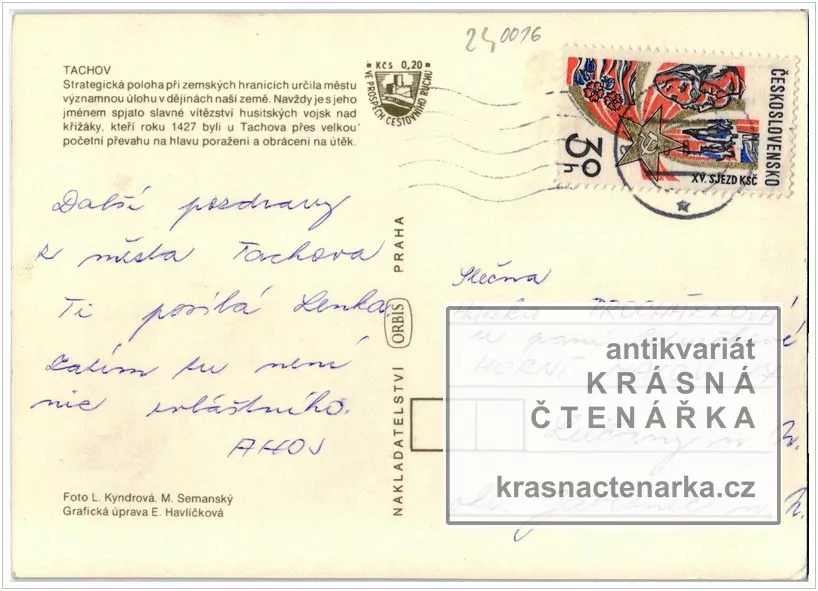 240016
TACHOV
Strategická poloha při zemských hranicích určila městu
významnou úlohu v dějinách naší země. Navždy je s jeho
jménem spjato slavné vítězství husitských vojsk nad
křižáky, kteří roku 1427 byli u Tachova přes velkou
početní převahu na hlavu poraženi a obráceni na útěk.
Kčs 0,20
VE PROSPĚCH CESTOVNÍHO RUCHU
ČESKOSLOVENSKO
30 h
XV. SJEZD KSČ
Další pozdravy
z města Tachova
Ti posílá Lenka.
Zatím tu není
nic zvláštního.
AHOJ
Foto L. Kyndrová, M. Semanský
Grafická úprava E. Havlíčková
NAKLADATELSTVÍ ORBIS PRAHA
Slečna
PROCHÁZKOVÁ
u paní
HORNÍ
Lučany n. N.
okr. Jablonec n. N.
antikvariát
KRÁSNÁ
ČTENÁŘKA
krasnactenarka.cz